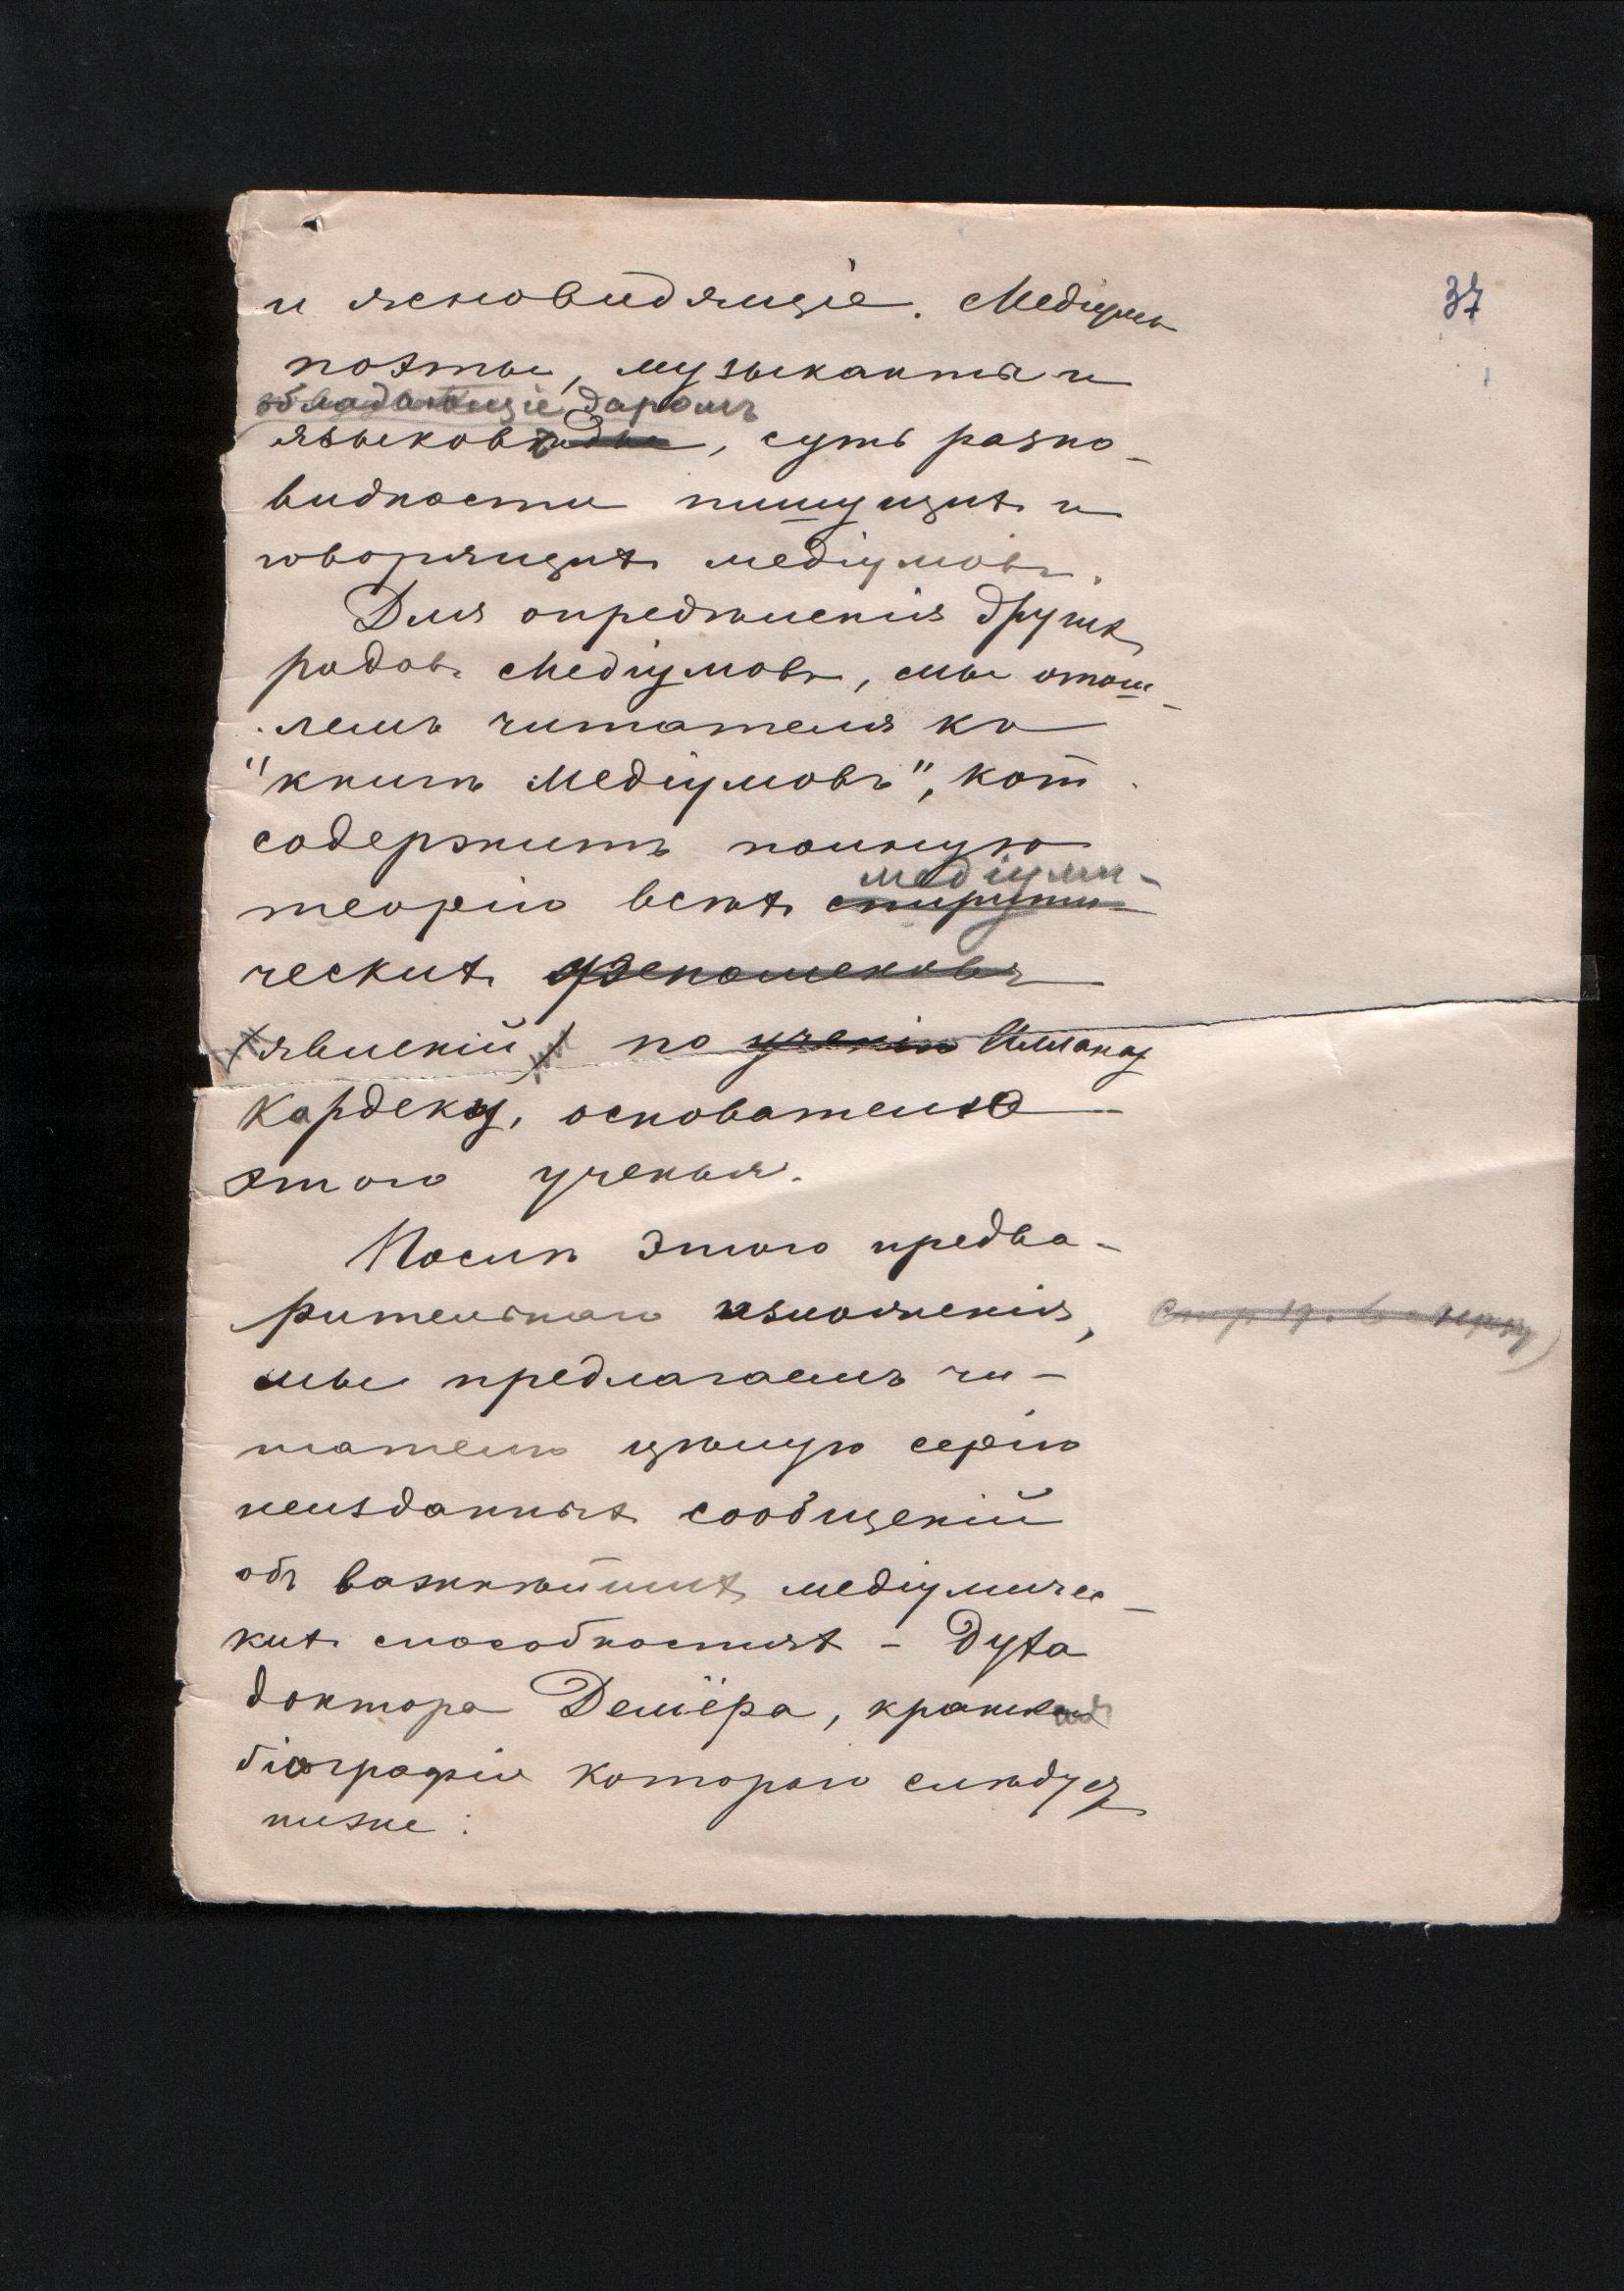 37
и ясновидящіе. Медіумы
поэты, музыканты и
обладающіе даромъ
языковъ, суть разно-
видности пишущихъ и
говорящихъ медіумовъ.
Для опредѣленія другихъ
родовъ Медіумовъ, мы отош-
лемъ читателя къ
"книгѣ Медіумовъ", кот.
содержитъ полную
медіуми-
теорію всѣхъ спирити-
ческихъ феноменовъ
(явленій) по ученію Аллану
Кардеку, основателю
этого ученья.
Послѣ этого предва-
рительнаго изложенія,
мы предлагаемъ чи-
тателю цѣлую серію
неизданныхъ сообщеній
объ важнѣйшихъ медіумичес-
кихъ способностяхъ - Духа
доктора Демёра, краткая
біографія котораго слѣдуетъ
ниже: